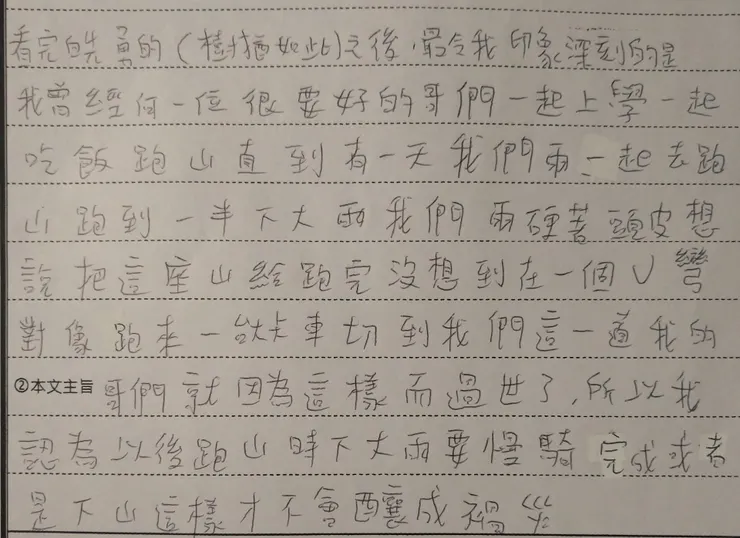 看完白先勇的(樹猶如此)之後,最令我印象深刻的是
我曾經何一位很要好的哥們一起上學一起
吃飯跑山直到有一天我們兩一起去跑
山跑到一半下大雨我們兩硬著頭皮想
說把這座山給跑完沒想到在一個U彎
對像跑來一台大卡車切到我們這一道我的
②本文主旨 哥們就因為這樣而過世了,所以我
認為以後跑山時下大雨要慢騎完成或者
是下山這樣才不會釀成禍災